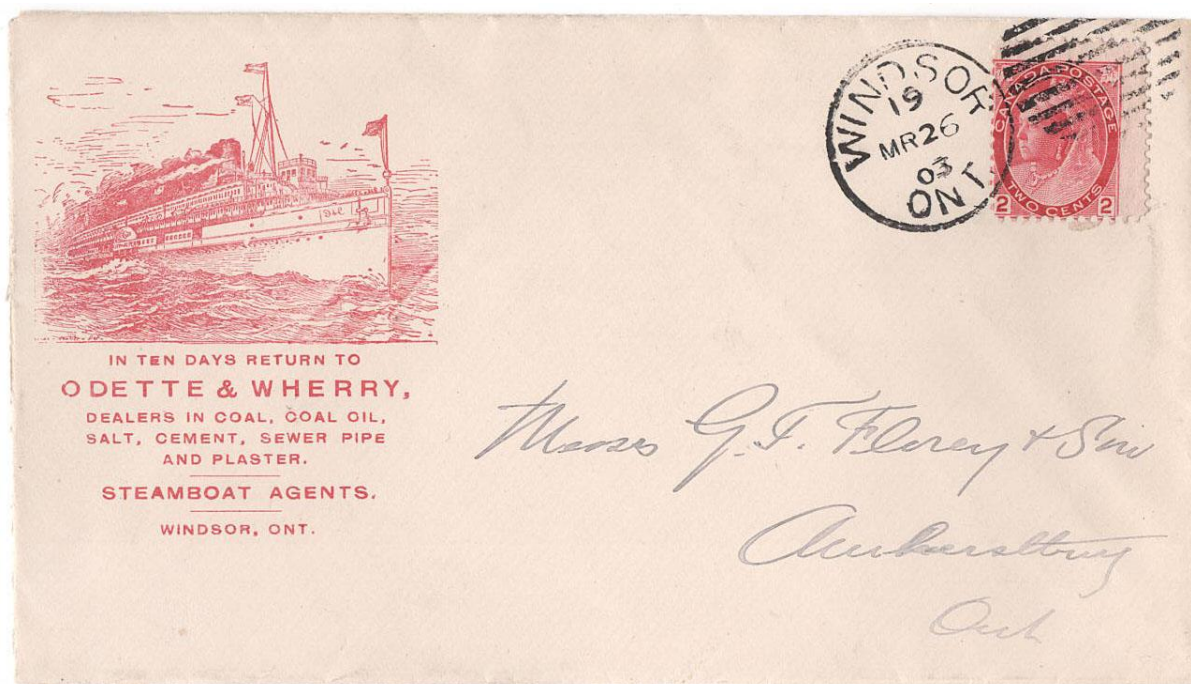 WINDSOR
19
MR 26
03
ONT
CANADA POSTAGE
2 TWO CENTS 2
IN TEN DAYS RETURN TO
ODETTE & WHERRY,
DEALERS IN COAL, COAL OIL,
SALT, CEMENT, SEWER PIPE
AND PLASTER.
STEAMBOAT AGENTS.
WINDSOR, ONT.
Messrs G. F. & Son
Amherstburg
Ont